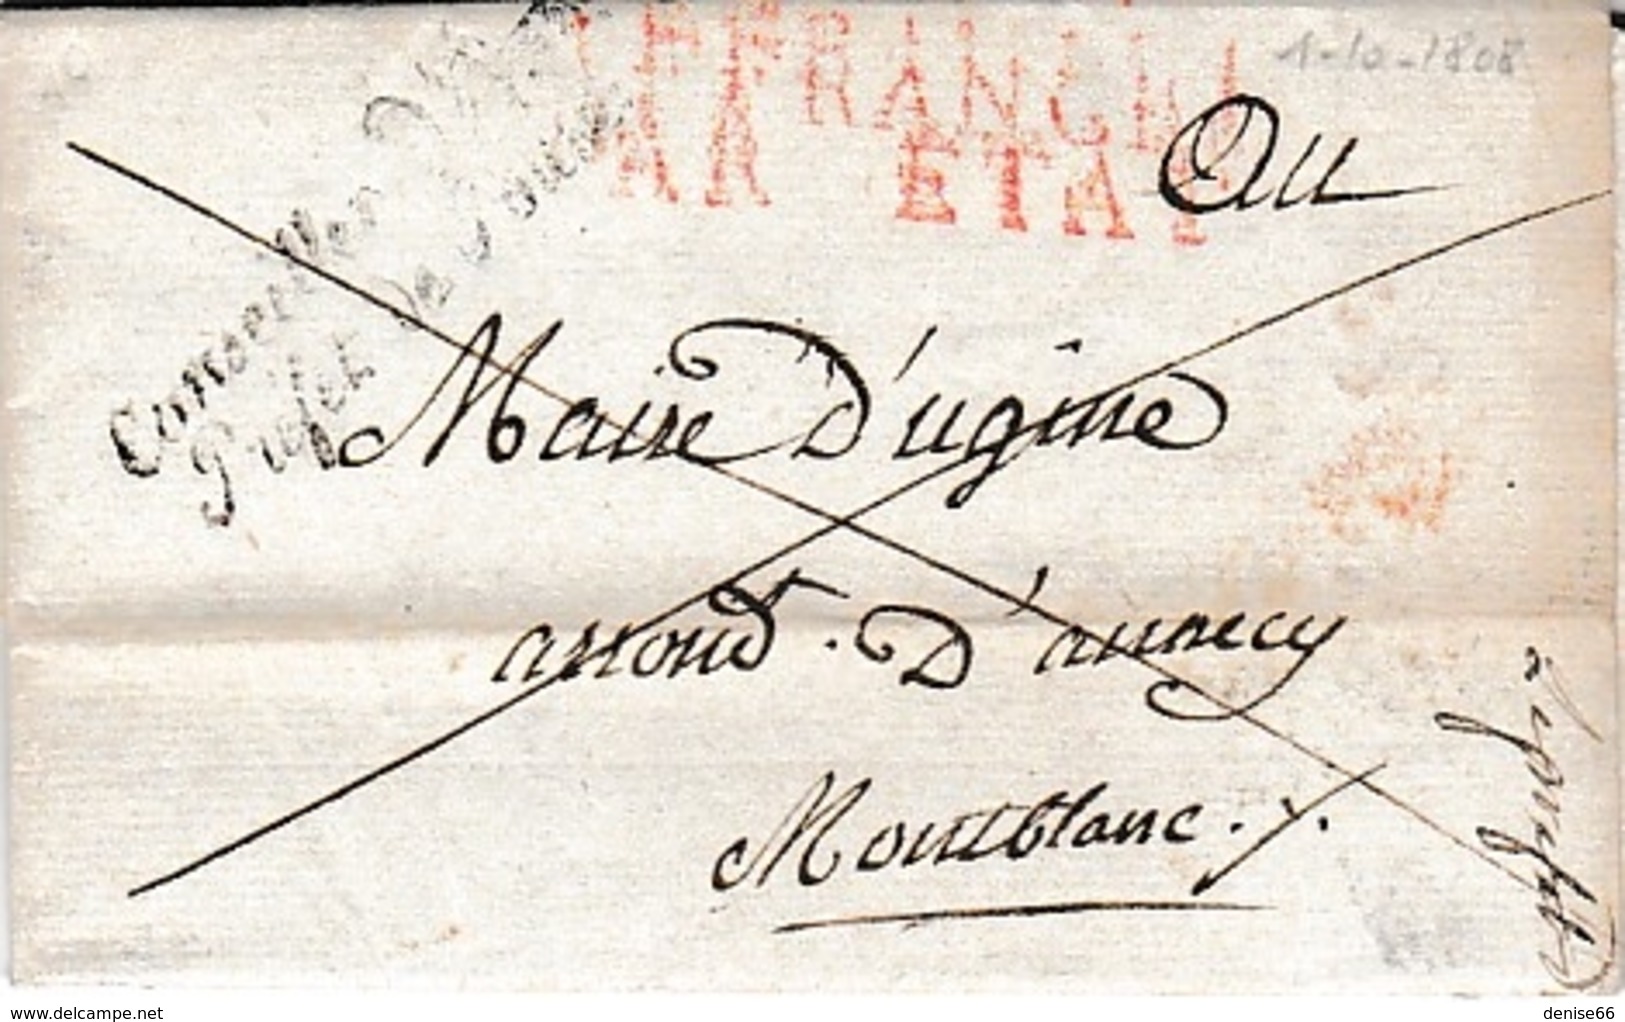 1-10-1808
AFFRANCHI
PAR ETAT
Conseiller D'Etat
Préfet de Police
Au
Maire D'ugine
arrond.t D'annecy
Montblanc.
www.delcampe.net
denise66